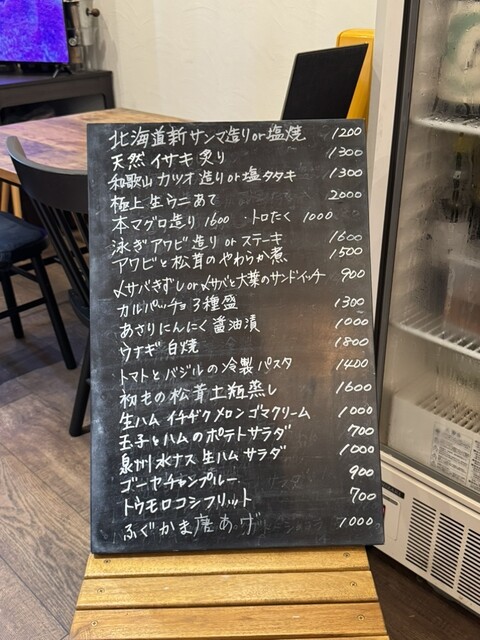 北海道新サンマ造りor塩焼 1200
天然イサキ炙り 1300
和歌山カツオ造りor塩タタキ 1300
極上生ウニあて 2000
本マグロ造り 1600 ・トロたく 1000
泳ぎアワビ造り or ステーキ 1600
アワビと松茸のやわらか煮 1500
〆サバきずしor〆サバと大葉のサンドイッチ 900
カルパッチョ3種盛 1300
あさりにんにく醤油漬 1000
ウナギ白焼 1800
トマトとバジルの冷製パスタ 1400
初もの松茸土瓶蒸し 1600
生ハムイチヂクメロンゴマクリーム 1000
玉子とハムのポテトサラダ 700
泉州水ナス生ハムサラダ 1000
ゴーヤチャンプルー 900
トウモロコシフリット 700
ふぐかま唐あげ 1000